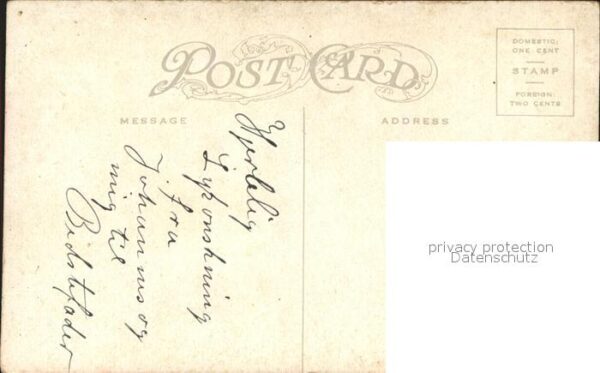 POST CARD
DOMESTIC:
ONE CENT
STAMP
FOREIGN:
TWO CENTS
MESSAGE
ADDRESS
Hjertelig
Lykønskning
fra
Johannes og
mig til
Bedstefader
privacy protection
Datenschutz